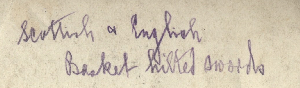 Scottish & English
Basket hilted swords